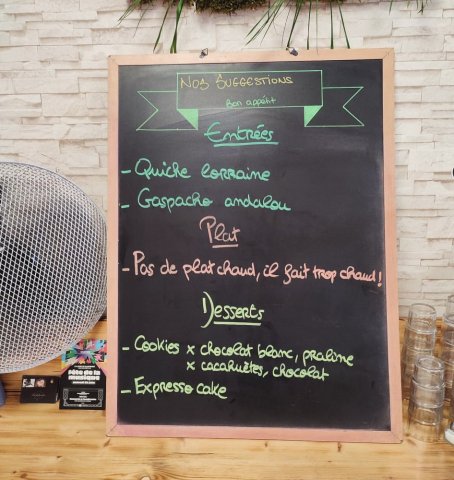 Nos Suggestions
Bon appétit
Entrées
- Quiche lorraine
- Gaspacho andalou
Plat
- Pas de plat chaud, il fait trop chaud!
Desserts
- Cookies x chocolat blanc, praline
x cacahuètes, chocolat
- Expresso cake
fête de la
musique